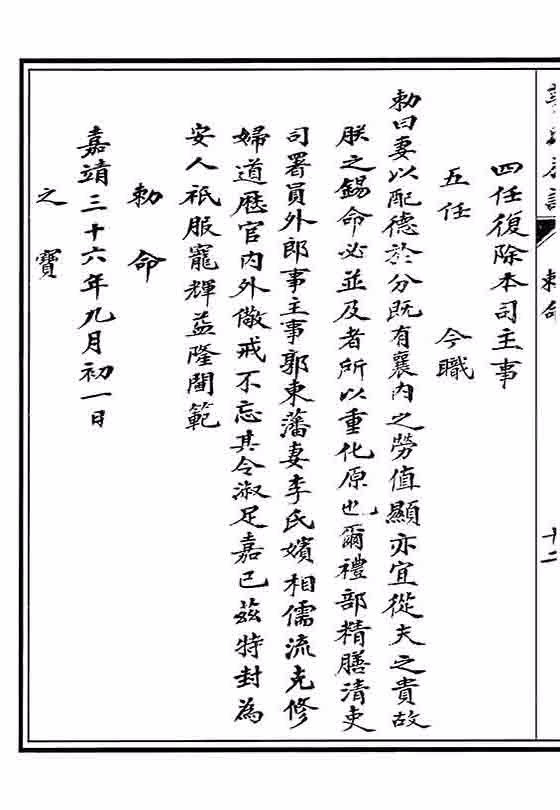 敕命
十二
四任復除本司主事
五任 今職
勅曰妻以配德於分既有襄內之勞值顯亦宜從夫之貴故
朕之錫命必並及者所以重化原也爾禮部精膳清吏
司署員外郎事主事郭東藩妻李氏嬪相儒流克修
婦道歷官內外儆戒不忘其令淑足嘉已茲特封為
安人祇服寵輝益隆閫範
勅命
嘉靖三十六年九月初一日
之寶